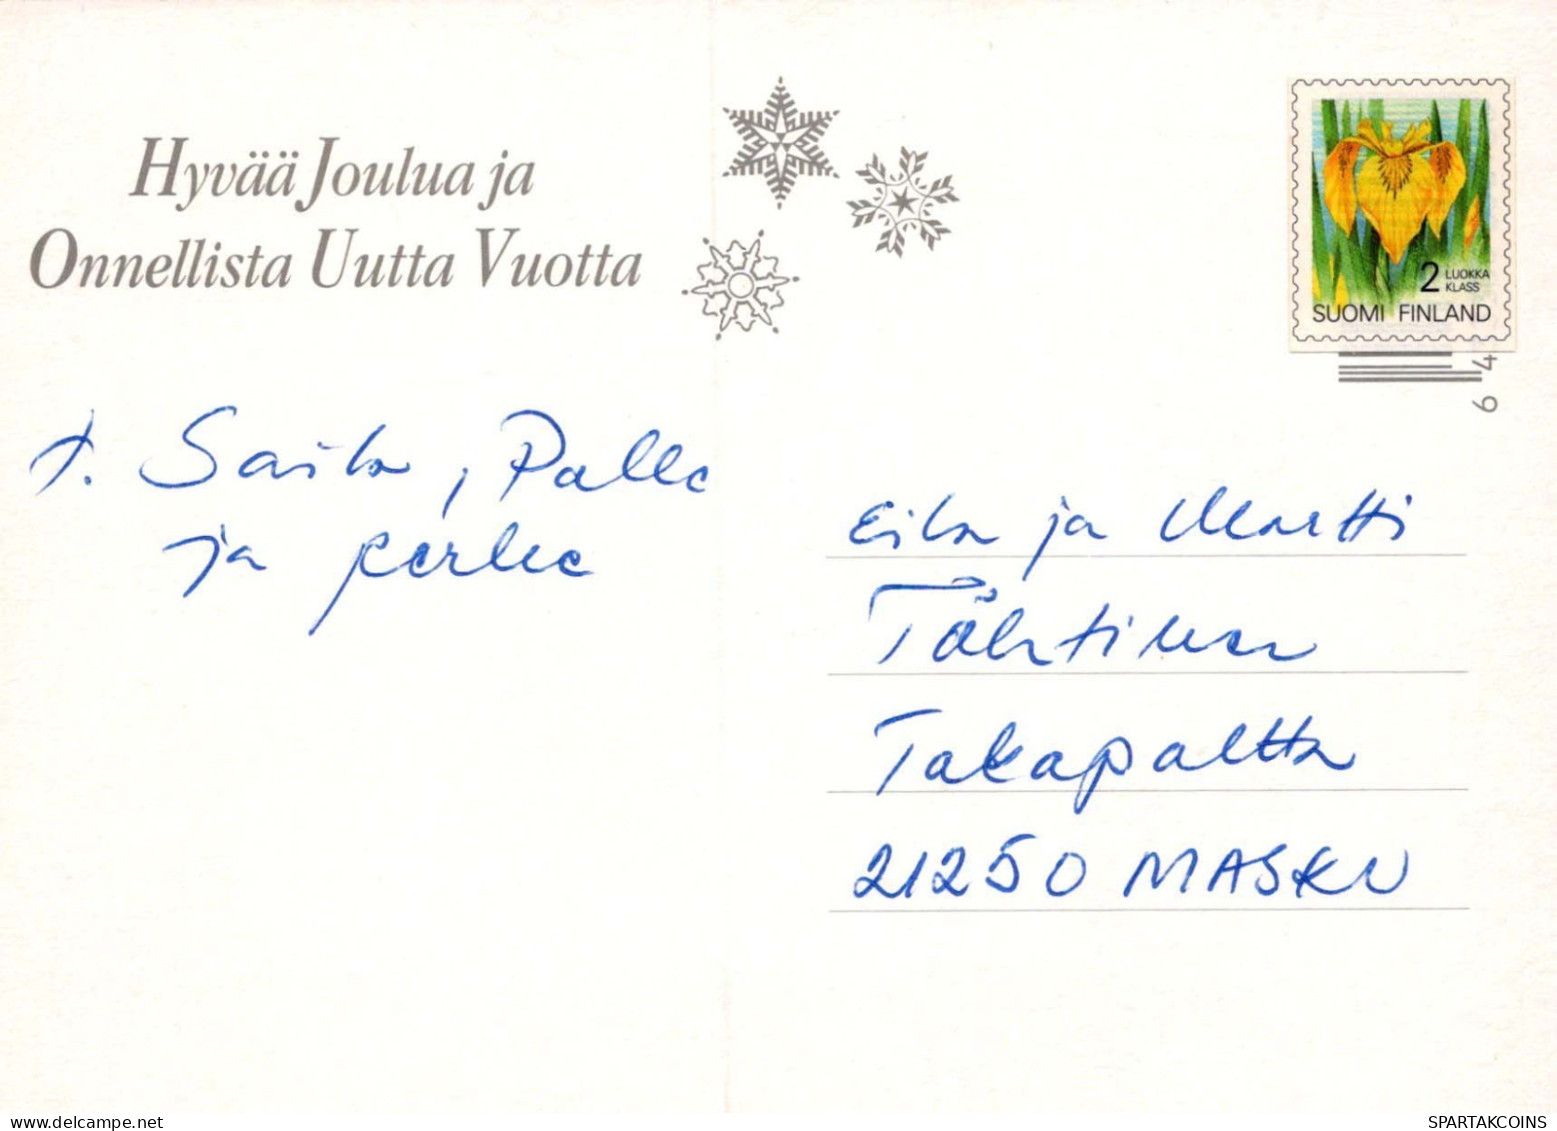 Hyvää Joulua ja
Onnellista Uutta Vuotta
t. Saila, Palle
ja perhe
2 LUOKKA
KLASS
SUOMI FINLAND
4
6
Eila ja Martti
Tähtinen
Takapaltta
21250 MASKU
SPARTAKCOINS